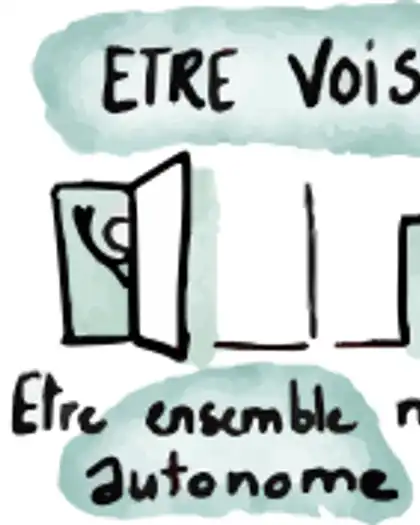 ETRE VOIS
Etre ensemble
autonome